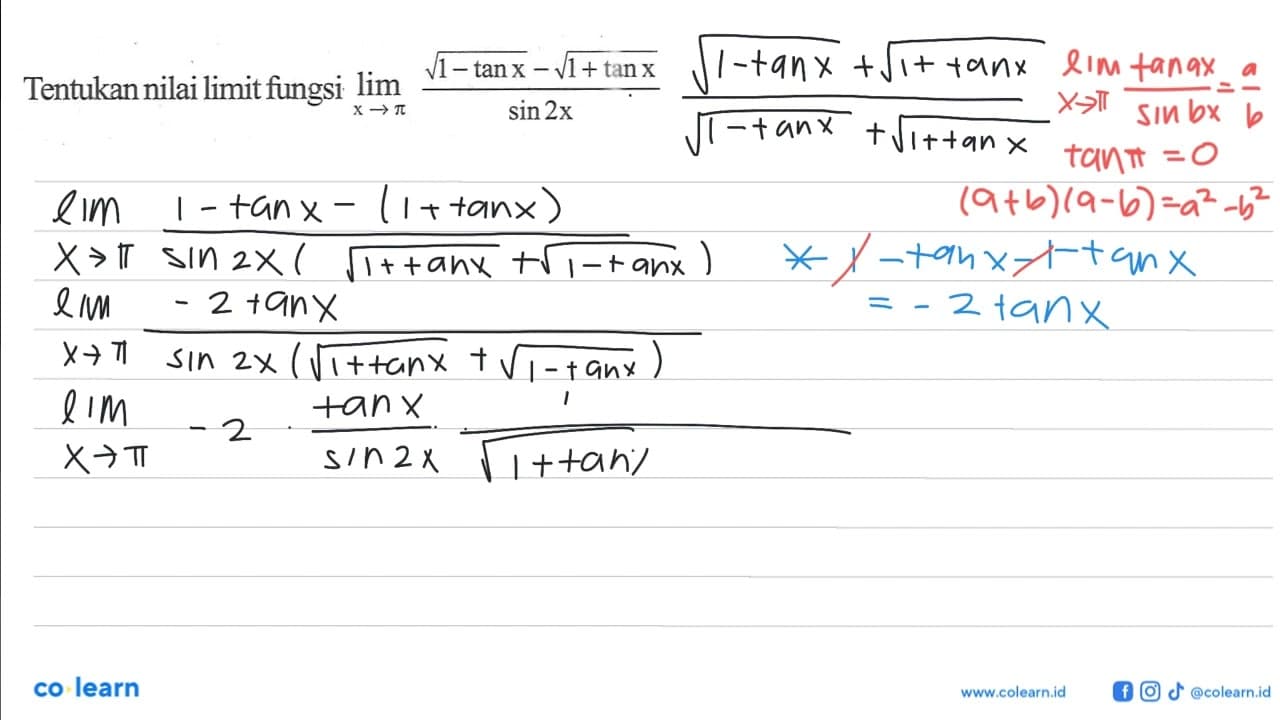 Tentukan nilai limit fungsi lim x→π (√(1 – tan x) – √(1 + tan x)) / (sin 2x)
(√(1-tan x) + √(1+ tan x)) / (√(1-tan x) + √(1+tan x))
lim x→π (tan ax) / (sin bx) = a/b
tan π = 0
(a+b)(a-b)=a²-b²
lim x→π (1 - tan x - (1 + tan x)) / (sin 2x ( √(1+tan x) + √(1-tan x) ))
* 1 - tan x - 1 - tan x
= - 2 tan x
lim x→π (- 2 tan x) / (sin 2x (√(1+tan x) + √(1-tan x)))
lim x→π - 2 · (tan x) / (sin 2x) · 1 / √(1+tan
co learn
www.colearn.id
@colearn.id